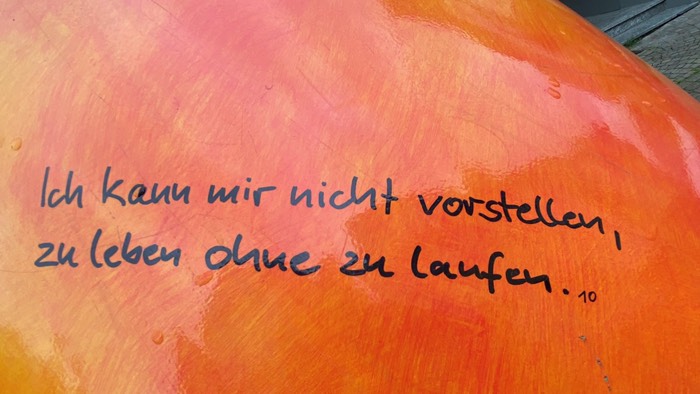 Ich kann mir nicht vorstellen,
zu leben ohne zu laufen. 10